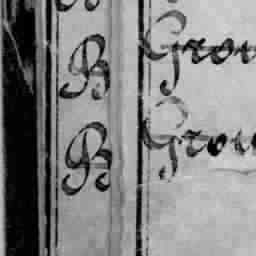 B Grou
B Grou